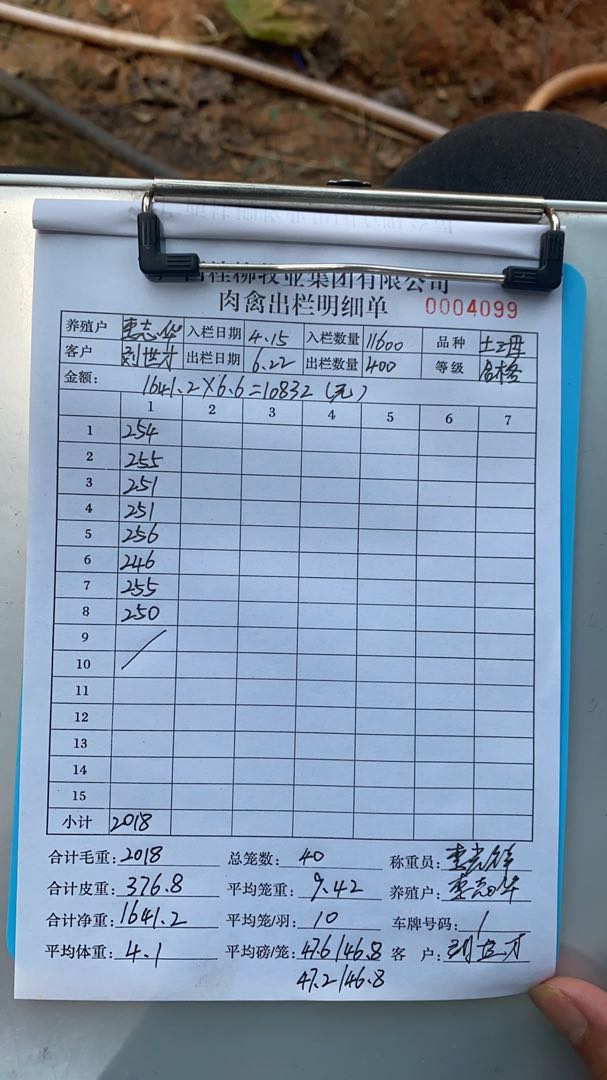 桂柳牧业集团有限公司
肉禽出栏明细单 0004099
养殖户 志华 入栏日期 4.15 入栏数量 11600 品种 土2母
客户 刘世才 出栏日期 6.22 出栏数量 400 等级 合格
金额: 1641.2×6.6=10832(元)
1 2 3 4 5 6 7
1 254
2 255
3 251
4 251
5 256
6 246
7 255
8 250
9
10
11
12
13
14
15
小计 2018
合计毛重: 2018 总笼数: 40 称重员:
合计皮重: 376.8 平均笼重: 9.42 养殖户: 志华
合计净重: 1641.2 平均笼/羽: 10 车牌号码: /
平均体重: 4.1 平均磅/笼: 47.6/46.8 客 户: 刘世才
47.2/46.8